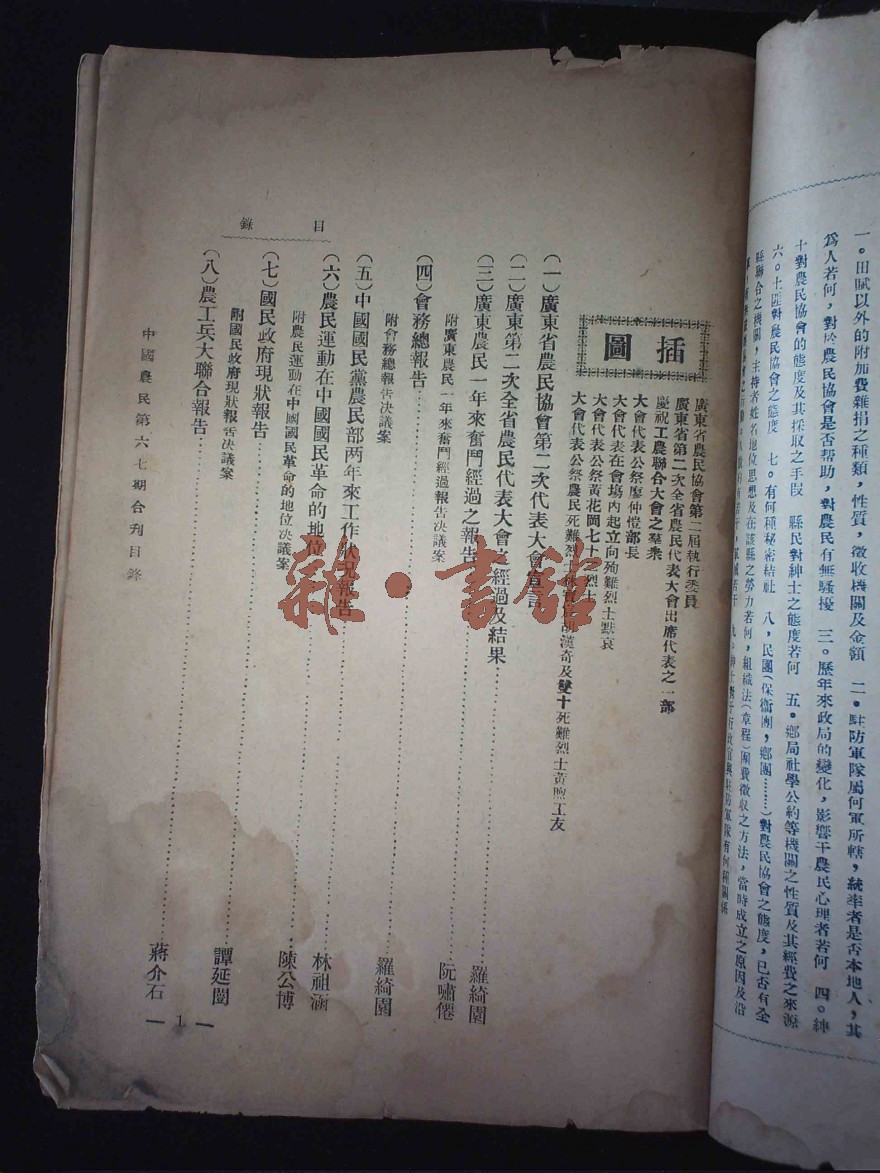 一。田賦以外的附加費雜捐之種類，性質，徵收機關及金額　二。駐防軍隊屬何軍所轄，統率者是否本地人，其
爲人若何，對於農民協會是否帮助，對農民有無騷擾　三。歷年來政局的變化，影響于農民心理者若何　四。紳
士對農民協會的態度及其採取之手段　縣民對紳士之態度若何　五。鄉局社學公約等機關之性質及其經費之來源
六。土匪對農民協會之態度　七。有何種秘密結社　八，民團（保衛團，鄉團………）對農民協會之態度，已否有全
縣聯合之機關，主持者姓名地位思想及在該縣之勞力若何，組織法（章程）團費徵收之方法，當時成立之原因及沿
插圖
廣東省農民協會第二屆執行委員
廣東省第二次全省農民代表大會出席代表之一部
慶祝工農聯合大會之羣衆
大會代表公祭廖仲愷部長
大會代表在會塲內起立向殉難烈士默哀
大會代表公祭黃花岡七十烈士
大會代表公祭農民死難烈士林寶宸胡漢奇及雙十死難烈士黃煦工友
目錄
（一）廣東省農民協會第二次代表大會宣言
（二）廣東第二次全省農民代表大會之經過及結果………羅綺園
（三）廣東農民一年來奮鬥經過之報告………阮嘯僊
附廣東農民一年來奮鬥經過報告决議案
（四）會務總報告………羅綺園
附會務總報告决議案
（五）中國國民黨農民部两年來工作狀况報告………林祖涵
（六）農民運動在中國國民革命的地位………陳公博
附農民運動在中國國民革命的地位决議案
（七）國民政府現狀報告………譚延闓
附國民政府現狀報告决議案
（八）農工兵大聯合報告………蔣介石
中國農民第六七期合刋目錄
一 1 一
雜·書館